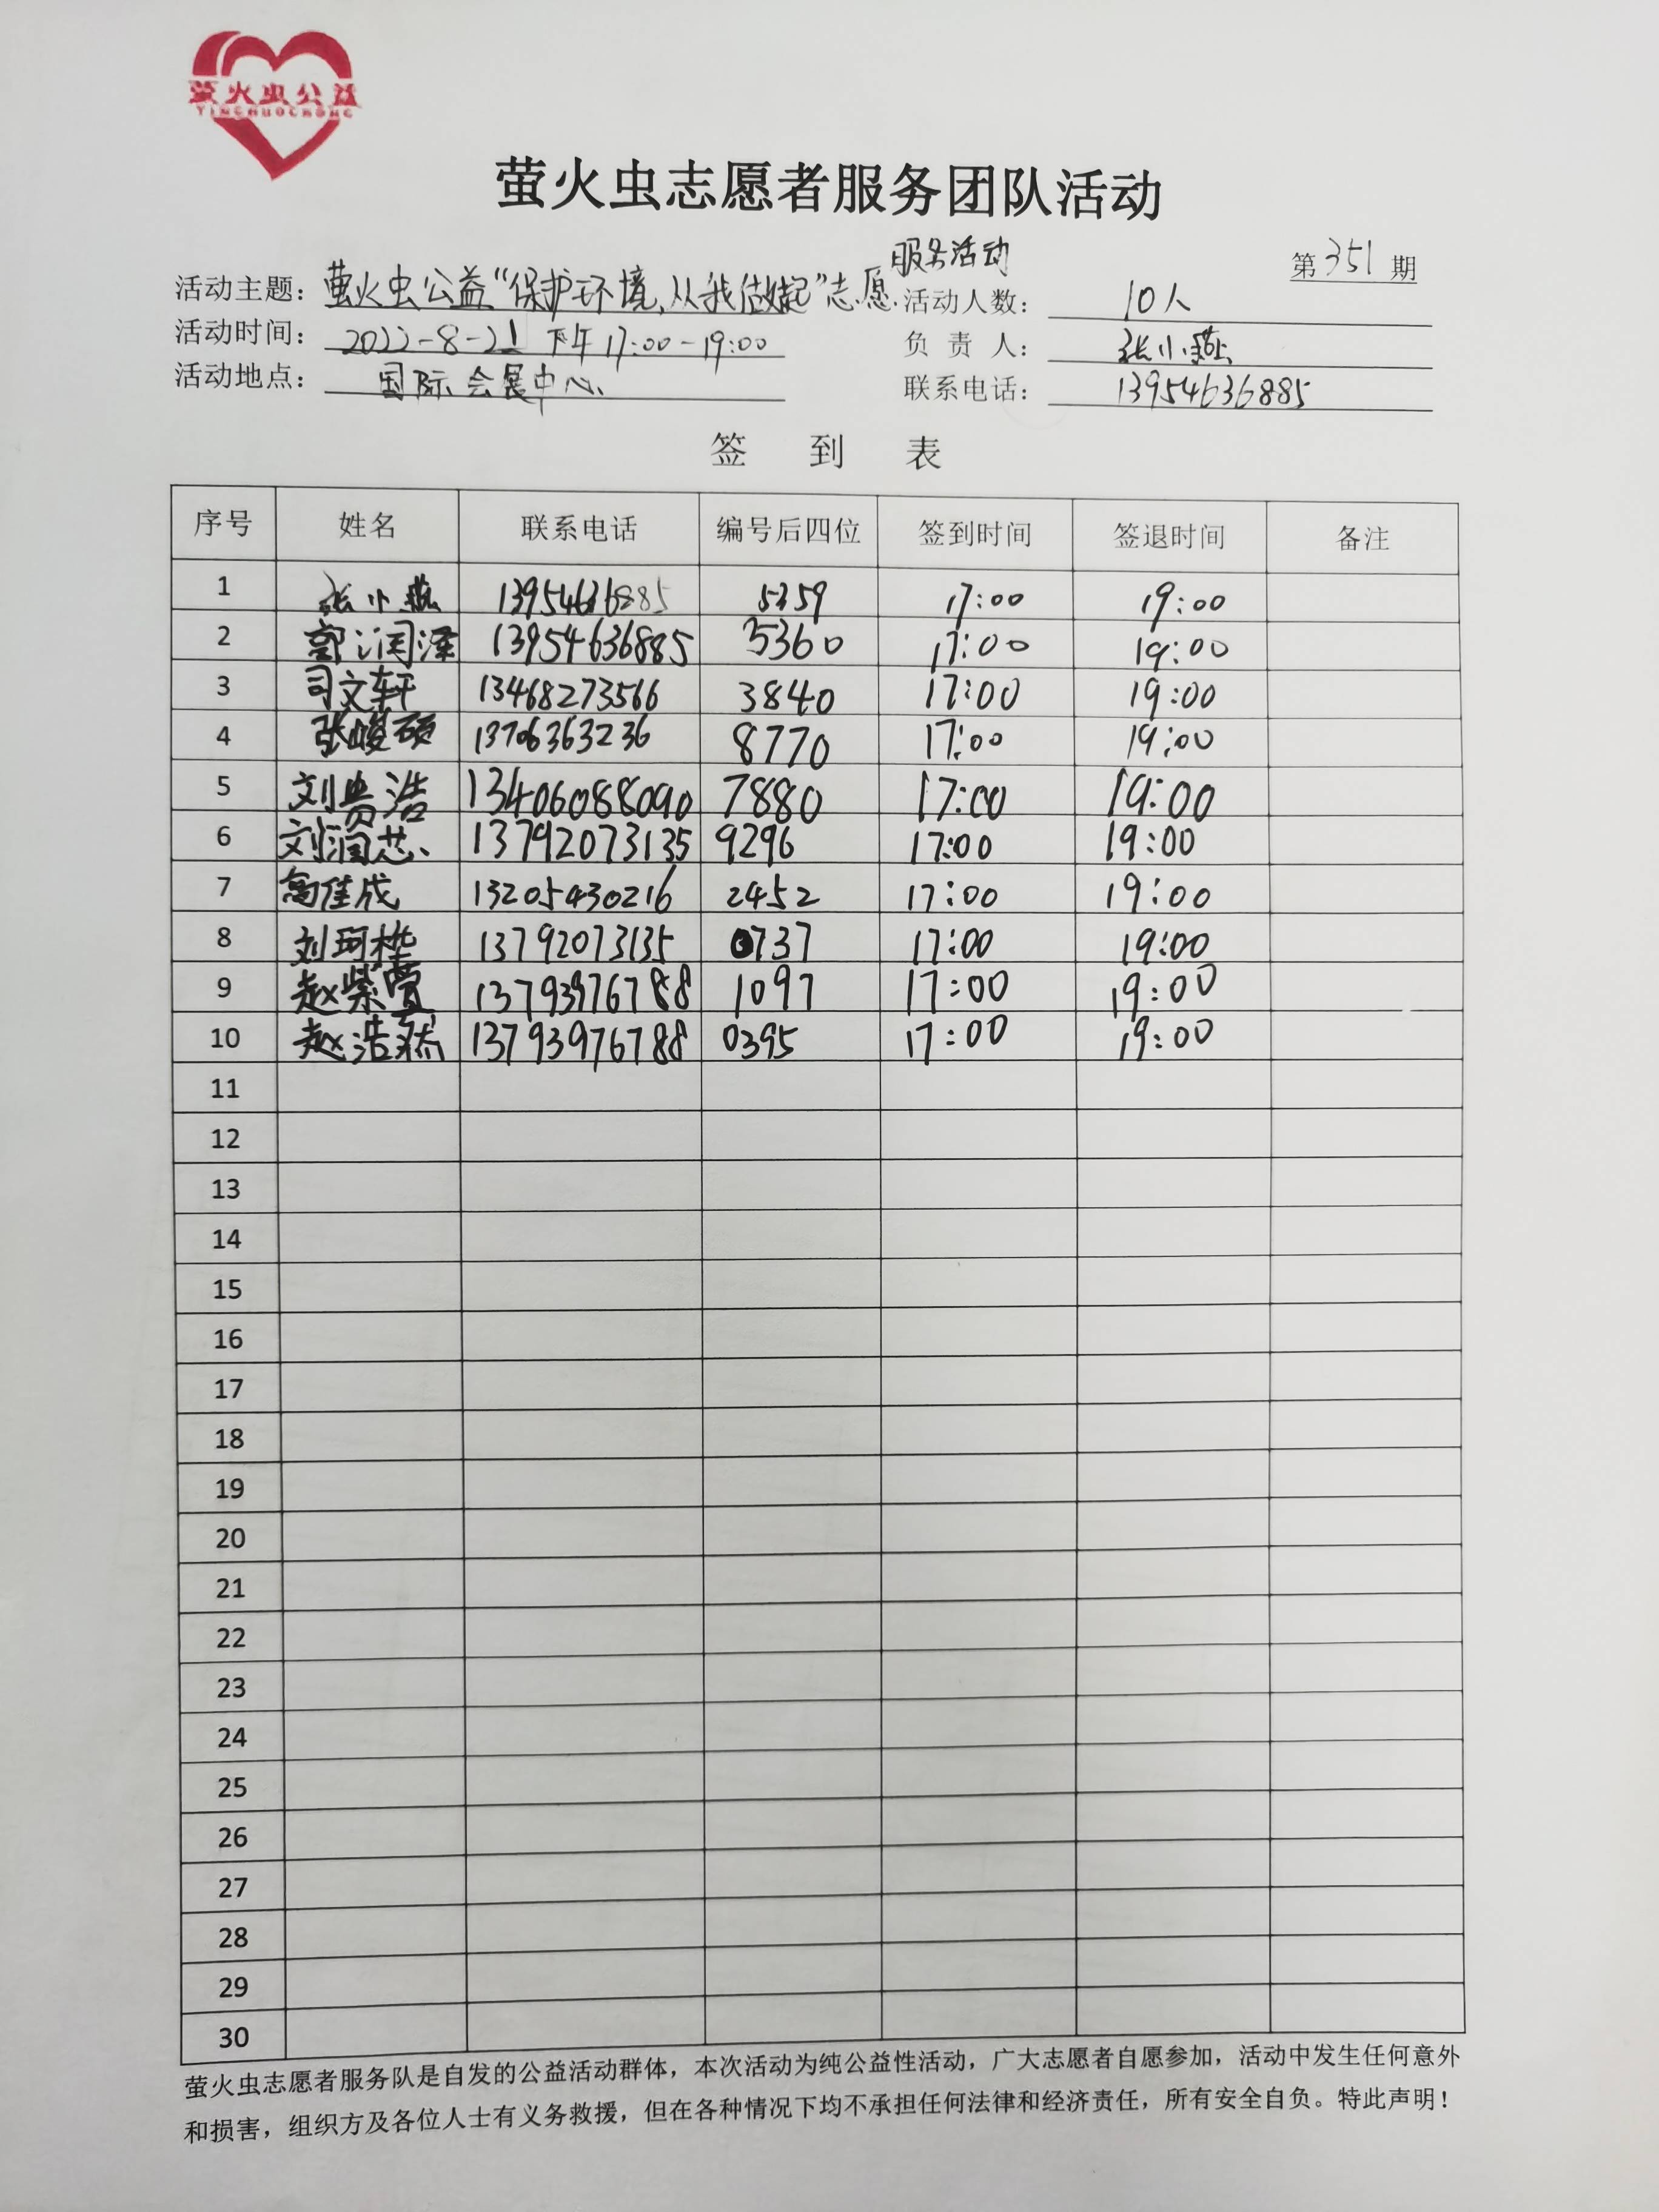 萤火虫公益
YINGHUOCHONG
萤火虫志愿者服务团队活动
第351期
活动主题：萤火虫公益“保护环境，从我做起”志愿服务活动
活动人数：10人
活动时间：2022-8-21 下午17:00-19:00
负责人：张小燕
活动地点：国际会展中心
联系电话：13954636885
签到表
序号 姓名 联系电话 编号后四位 签到时间 签退时间 备注
1 张小燕 13954636885 5359 17:00 19:00
2 郭润泽 13954636885 5360 17:00 19:00
3 司文轩 13468273566 3840 17:00 19:00
4 张峻硕 13706363236 8770 17:00 19:00
5 刘贵浩 13406088090 7880 17:00 19:00
6 刘润芯 13792073135 9296 17:00 19:00
7 高佳成 13205430216 2452 17:00 19:00
8 刘珂桦 13792073135 0737 17:00 19:00
9 赵紫萱 13793976788 1097 17:00 19:00
10 赵浩 13793976788 0395 17:00 19:00
11
12
13
14
15
16
17
18
19
20
21
22
23
24
25
26
27
28
29
30
萤火虫志愿者服务队是自发的公益活动群体，本次活动为纯公益性活动，广大志愿者自愿参加，活动中发生任何意外
和损害，组织方及各位人士有义务救援，但在各种情况下均不承担任何法律和经济责任，所有安全自负。特此声明！